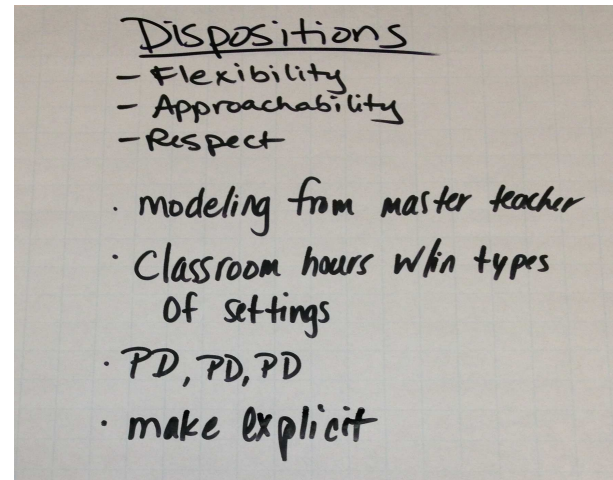 Dispositions
- Flexibility
- Approachability
- Respect
· modeling from master teacher
· Classroom hours w/in types
of settings
· PD, PD, PD
· make explicit